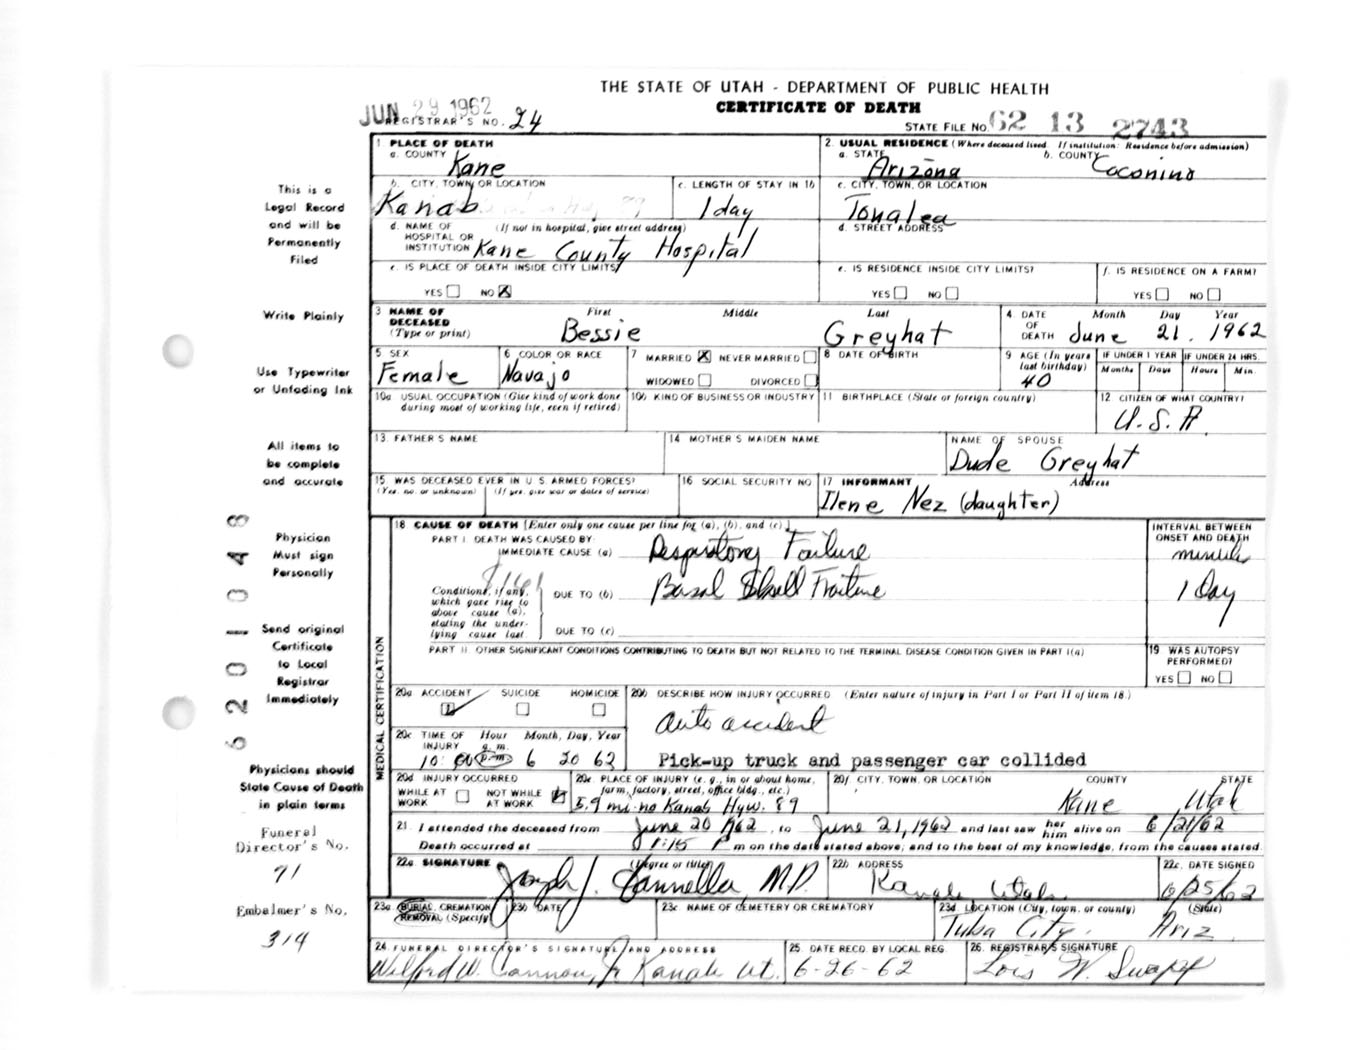 THE STATE OF UTAH - DEPARTMENT OF PUBLIC HEALTH
CERTIFICATE OF DEATH
JUN 29 1962
REGISTRAR'S NO. 24
STATE FILE NO. 62 13 2743
This is a Legal Record and will be Permanently Filed
Write Plainly
Use Typewriter or Unfading Ink
All items to be complete and accurate
Physician Must sign Personally
Send original Certificate to Local Registrar Immediately
Physicians should State Cause of Death in plain terms
Funeral Director's No.
91
Embalmer's No.
314
6201048
1 PLACE OF DEATH
a. COUNTY Kane
2. USUAL RESIDENCE (Where deceased lived. If institution: Residence before admission)
a. STATE Arizona b. COUNTY Coconino
b. CITY, TOWN OR LOCATION Kanab
c. LENGTH OF STAY IN 1b 1 day
c. CITY, TOWN, OR LOCATION Tonalea
d. NAME OF HOSPITAL OR INSTITUTION (If not in hospital, give street address) Kane County Hospital
d. STREET ADDRESS
e. IS PLACE OF DEATH INSIDE CITY LIMITS?
YES NO X
e. IS RESIDENCE INSIDE CITY LIMITS?
YES NO
f. IS RESIDENCE ON A FARM?
YES NO
3 NAME OF DECEASED (Type or print) First Middle Last
Bessie Greyhat
4 DATE OF DEATH Month Day Year
June 21. 1962
5 SEX Female
6 COLOR OR RACE Navajo
7 MARRIED X NEVER MARRIED
WIDOWED DIVORCED
8 DATE OF BIRTH
9 AGE (In years last birthday) 40
IF UNDER 1 YEAR Months Days
IF UNDER 24 HRS. Hours Min.
10a USUAL OCCUPATION (Give kind of work done during most of working life, even if retired)
10b KIND OF BUSINESS OR INDUSTRY
11 BIRTHPLACE (State or foreign country)
12 CITIZEN OF WHAT COUNTRY?
U.S.A.
13. FATHER'S NAME
14 MOTHER'S MAIDEN NAME
NAME OF SPOUSE
Dude Greyhat
15 WAS DECEASED EVER IN U.S. ARMED FORCES?
(Yes, no, or unknown) (If yes, give war or dates of service)
16 SOCIAL SECURITY NO
17 INFORMANT Address
Ilene Nez (daughter)
MEDICAL CERTIFICATION
18 CAUSE OF DEATH [Enter only one cause per line for (a), (b), and (c).]
INTERVAL BETWEEN ONSET AND DEATH
PART I. DEATH WAS CAUSED BY:
IMMEDIATE CAUSE (a) Respiratory Failure
Conditions, if any, which gave rise to above cause (a), stating the underlying cause last.
DUE TO (b) Basal Skull Fracture 1 Day
DUE TO (c)
PART II OTHER SIGNIFICANT CONDITIONS CONTRIBUTING TO DEATH BUT NOT RELATED TO THE TERMINAL DISEASE CONDITION GIVEN IN PART I(a)
19 WAS AUTOPSY PERFORMED?
YES NO
20a ACCIDENT SUICIDE HOMICIDE
20b DESCRIBE HOW INJURY OCCURRED (Enter nature of injury in Part I or Part II of item 18.)
auto accident
Pick-up truck and passenger car collided
20c TIME OF INJURY Hour Month, Day, Year
a.m.
10:00 p.m. 6 20 62
20d INJURY OCCURRED
WHILE AT WORK NOT WHILE AT WORK
20e. PLACE OF INJURY (e. g., in or about home, farm, factory, street, office bldg., etc.)
5.9 mi. no Kanab Hyw. 89
20f CITY, TOWN, OR LOCATION COUNTY STATE
Kane Utah
21. I attended the deceased from June 20 1962, to June 21, 1962 and last saw her him alive on 6/21/62
Death occurred at 1:15 P m on the date stated above; and to the best of my knowledge, from the causes stated.
22a SIGNATURE (Degree or title)
Joseph J. Cannella, M.D.
22b ADDRESS
Kanab Utah
22c. DATE SIGNED
6/25/62
23a BURIAL, CREMATION REMOVAL (Specify)
23b DATE
23c. NAME OF CEMETERY OR CREMATORY
23d LOCATION (City, town, or county) (State)
Tuba City. Ariz.
24. FUNERAL DIRECTOR'S SIGNATURE AND ADDRESS
Wilford W. Cannon, Jr Kanab Ut.
25. DATE RECD. BY LOCAL REG.
6-26-62
26. REGISTRAR'S SIGNATURE
Lois W. Swapp